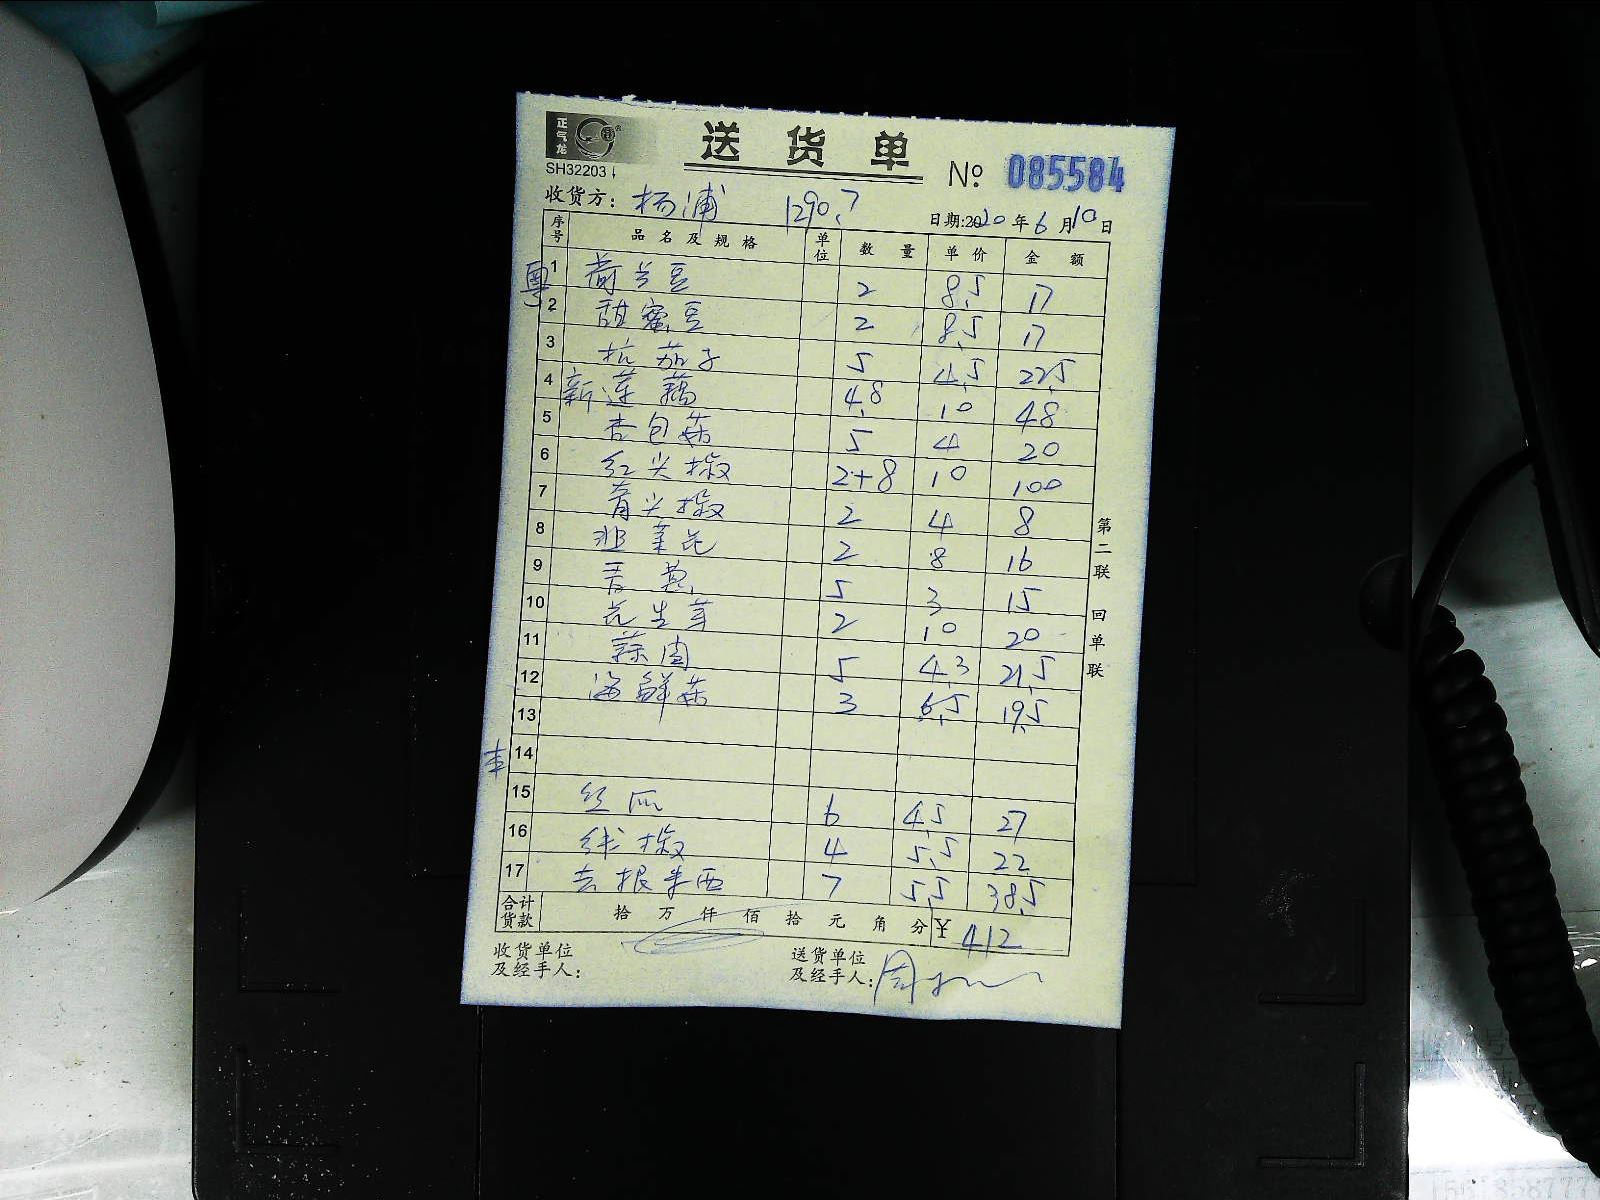 正气龙
送货单
SH32203
No. 085584
收货方: 杨浦 1290.7
日期:2020年6月10日
序号 品名及规格 单位 数量 单价 金额
粤
1 荷兰豆 2 8.5 17
2 甜蜜豆 2 8.5 17
3 杭茄子 5 4.5 22.5
4 新莲藕 4.8 10 48
5 杏包菇 5 4 20
6 红尖椒 2+8 10 100
7 青尖椒 2 4 8
8 韭菜花 2 8 16
9 香葱 5 3 15
10 花生芽 2 10 20
11 蒜肉 5 4.3 21.5
12 海鲜菇 3 6.5 19.5
13
本
14
15 丝瓜 6 4.5 27
16 线椒 4 5.5 22
17 去根半西 7 5.5 38.5
合计货款 拾 万 仟 佰 拾 元 角 分 ¥ 412
收货单位及经手人:
送货单位及经手人: 周
第二联 回单联